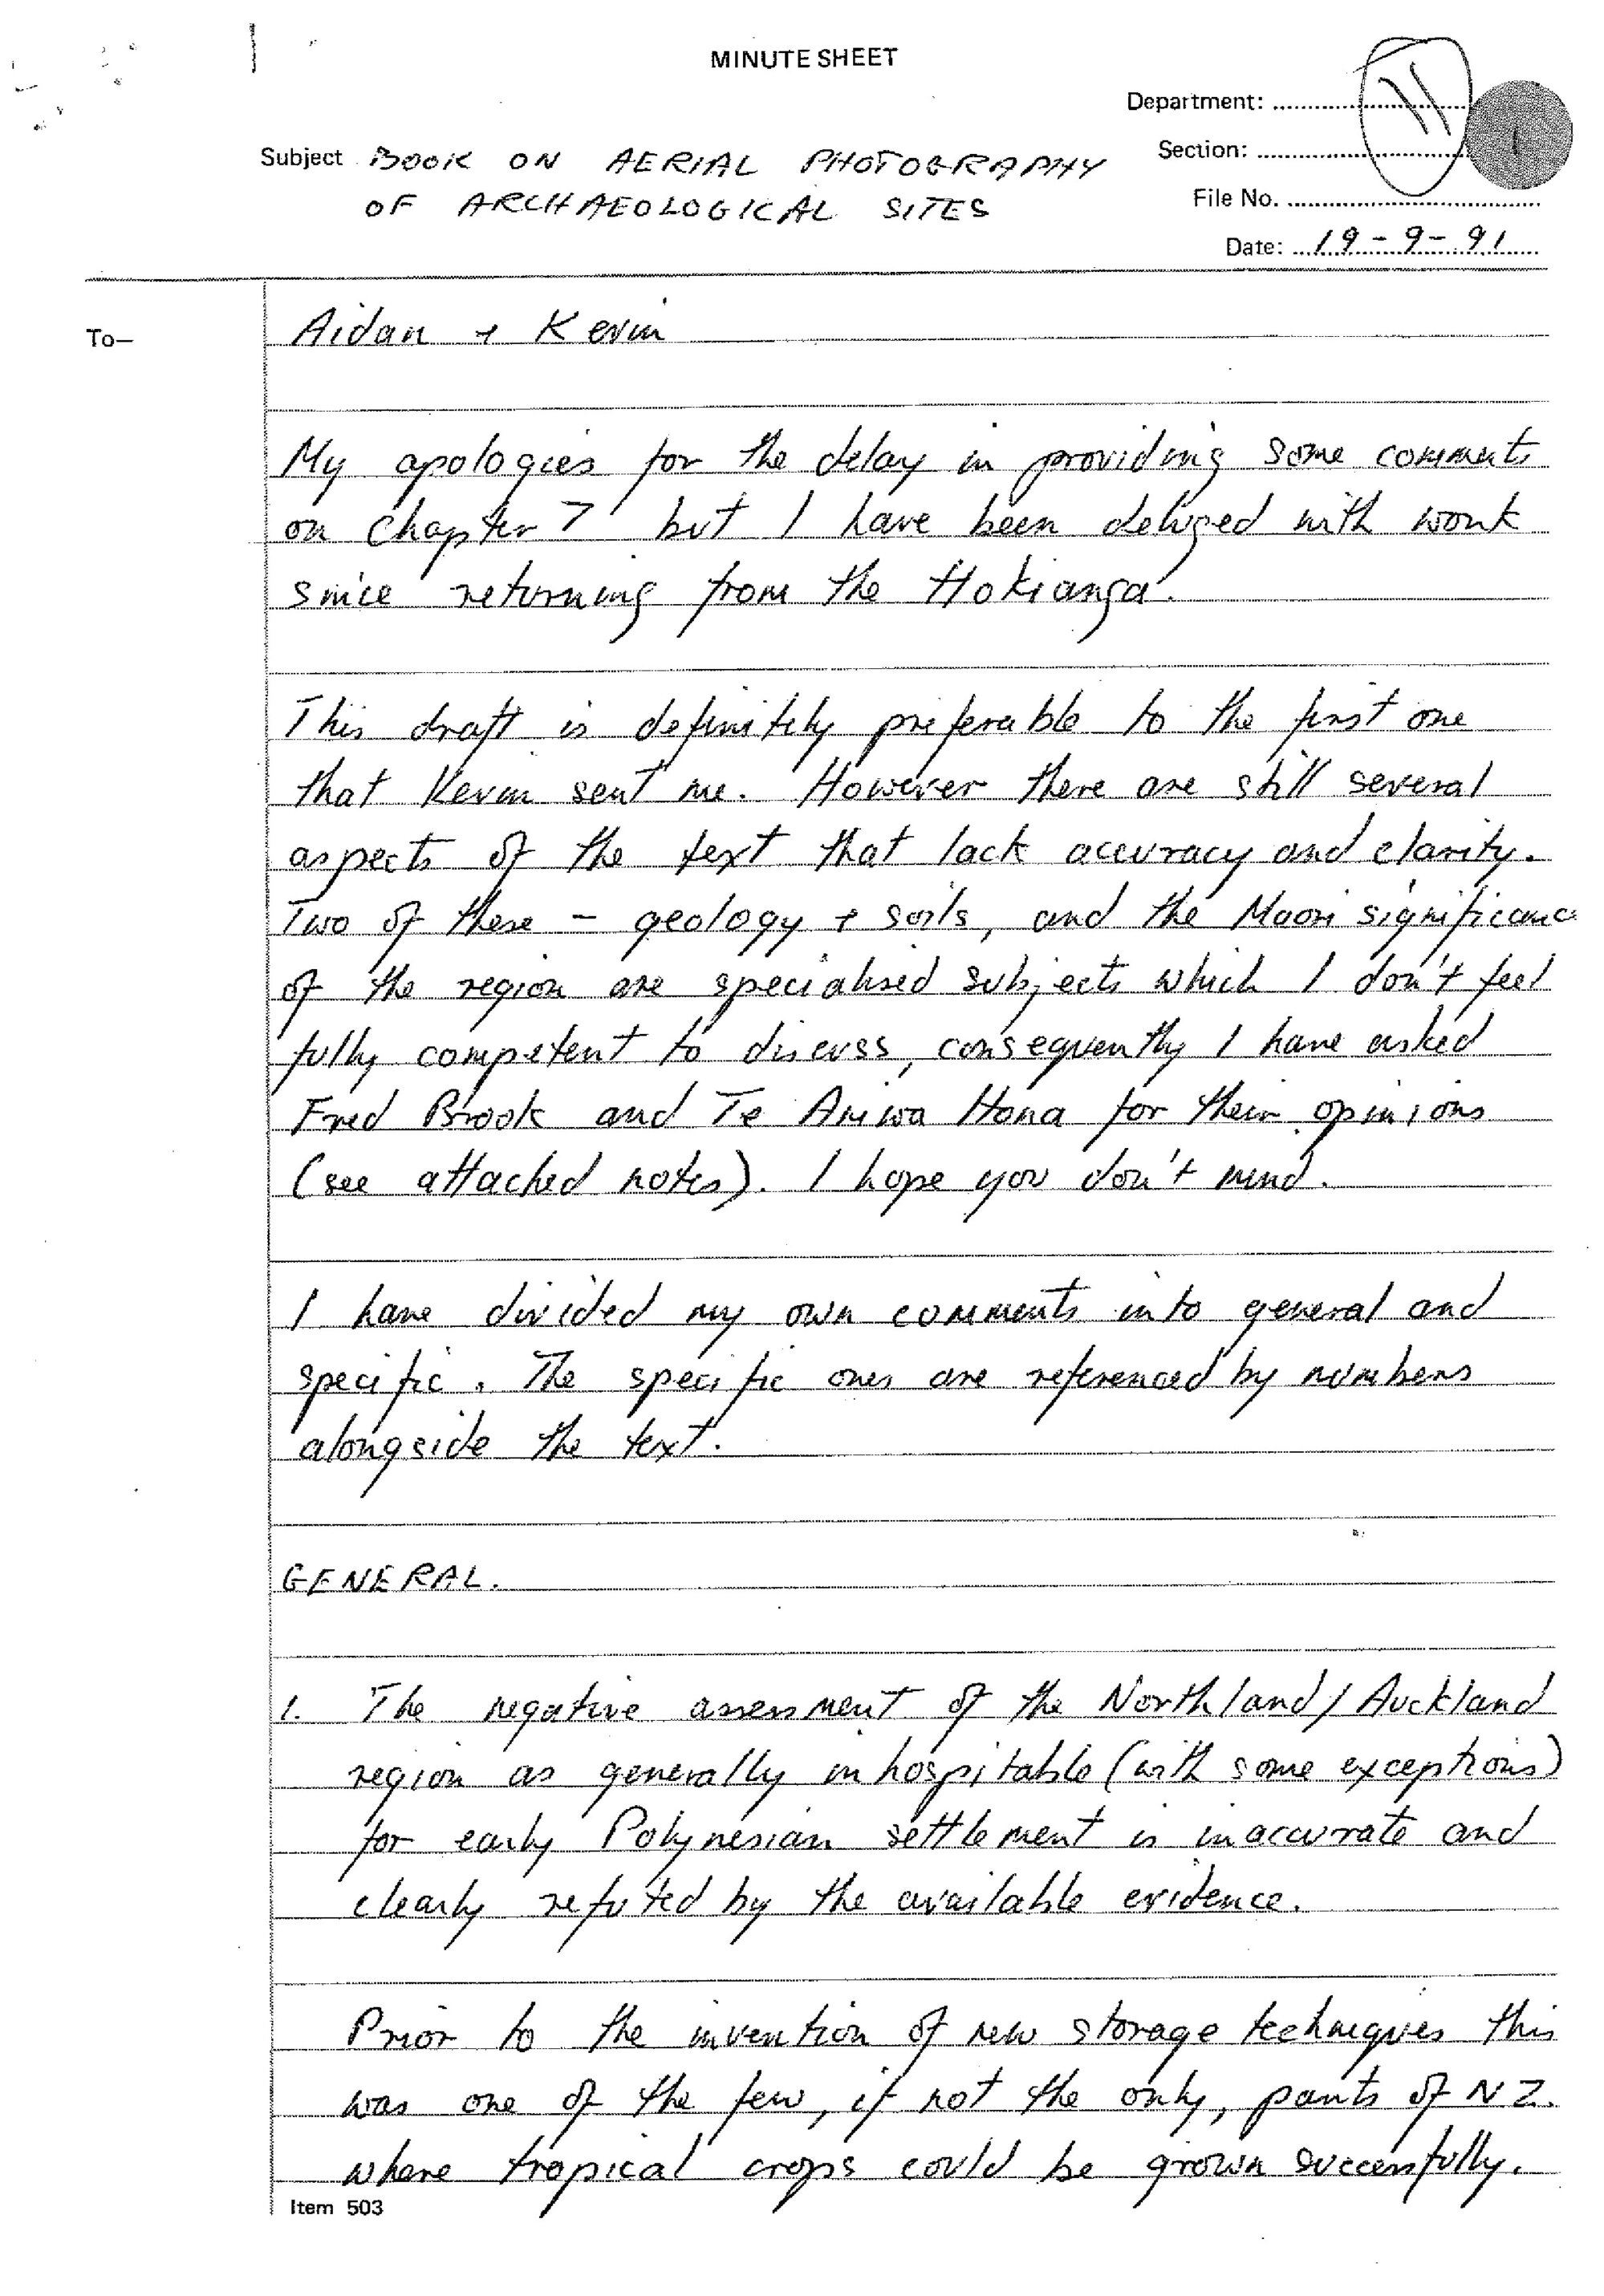 MINUTE SHEET
Department:
11
Section:
Subject BOOK ON AERIAL PHOTOGRAPHY
OF ARCHAEOLOGICAL SITES
File No.
Date: 19-9-91
To—
Aidan + Kevin
My apologies for the delay in providing some comments
on Chapter 7 but I have been deluged with work
since returning from the Hokianga.
This draft is definitely preferable to the first one
that Kevin sent me. However there are still several
aspects of the text that lack accuracy and clarity.
Two of these - geology + soils, and the Maori significance
of the region are specialised subjects which I don't feel
fully competent to discuss, consequently I have asked
Fred Brook and Te Ariwa Hona for their opinions
(see attached notes). I hope you don't mind.
I have divided my own comments into general and
specific. The specific ones are referenced by numbers
alongside the text.
GENERAL.
1. The negative assessment of the Northland/Auckland
region as generally inhospitable (with some exceptions)
for early Polynesian settlement is inaccurate and
clearly refuted by the available evidence.
Prior to the invention of new storage techniques this
was one of the few, if not the only, parts of NZ.
where tropical crops could be grown successfully.
Item 503